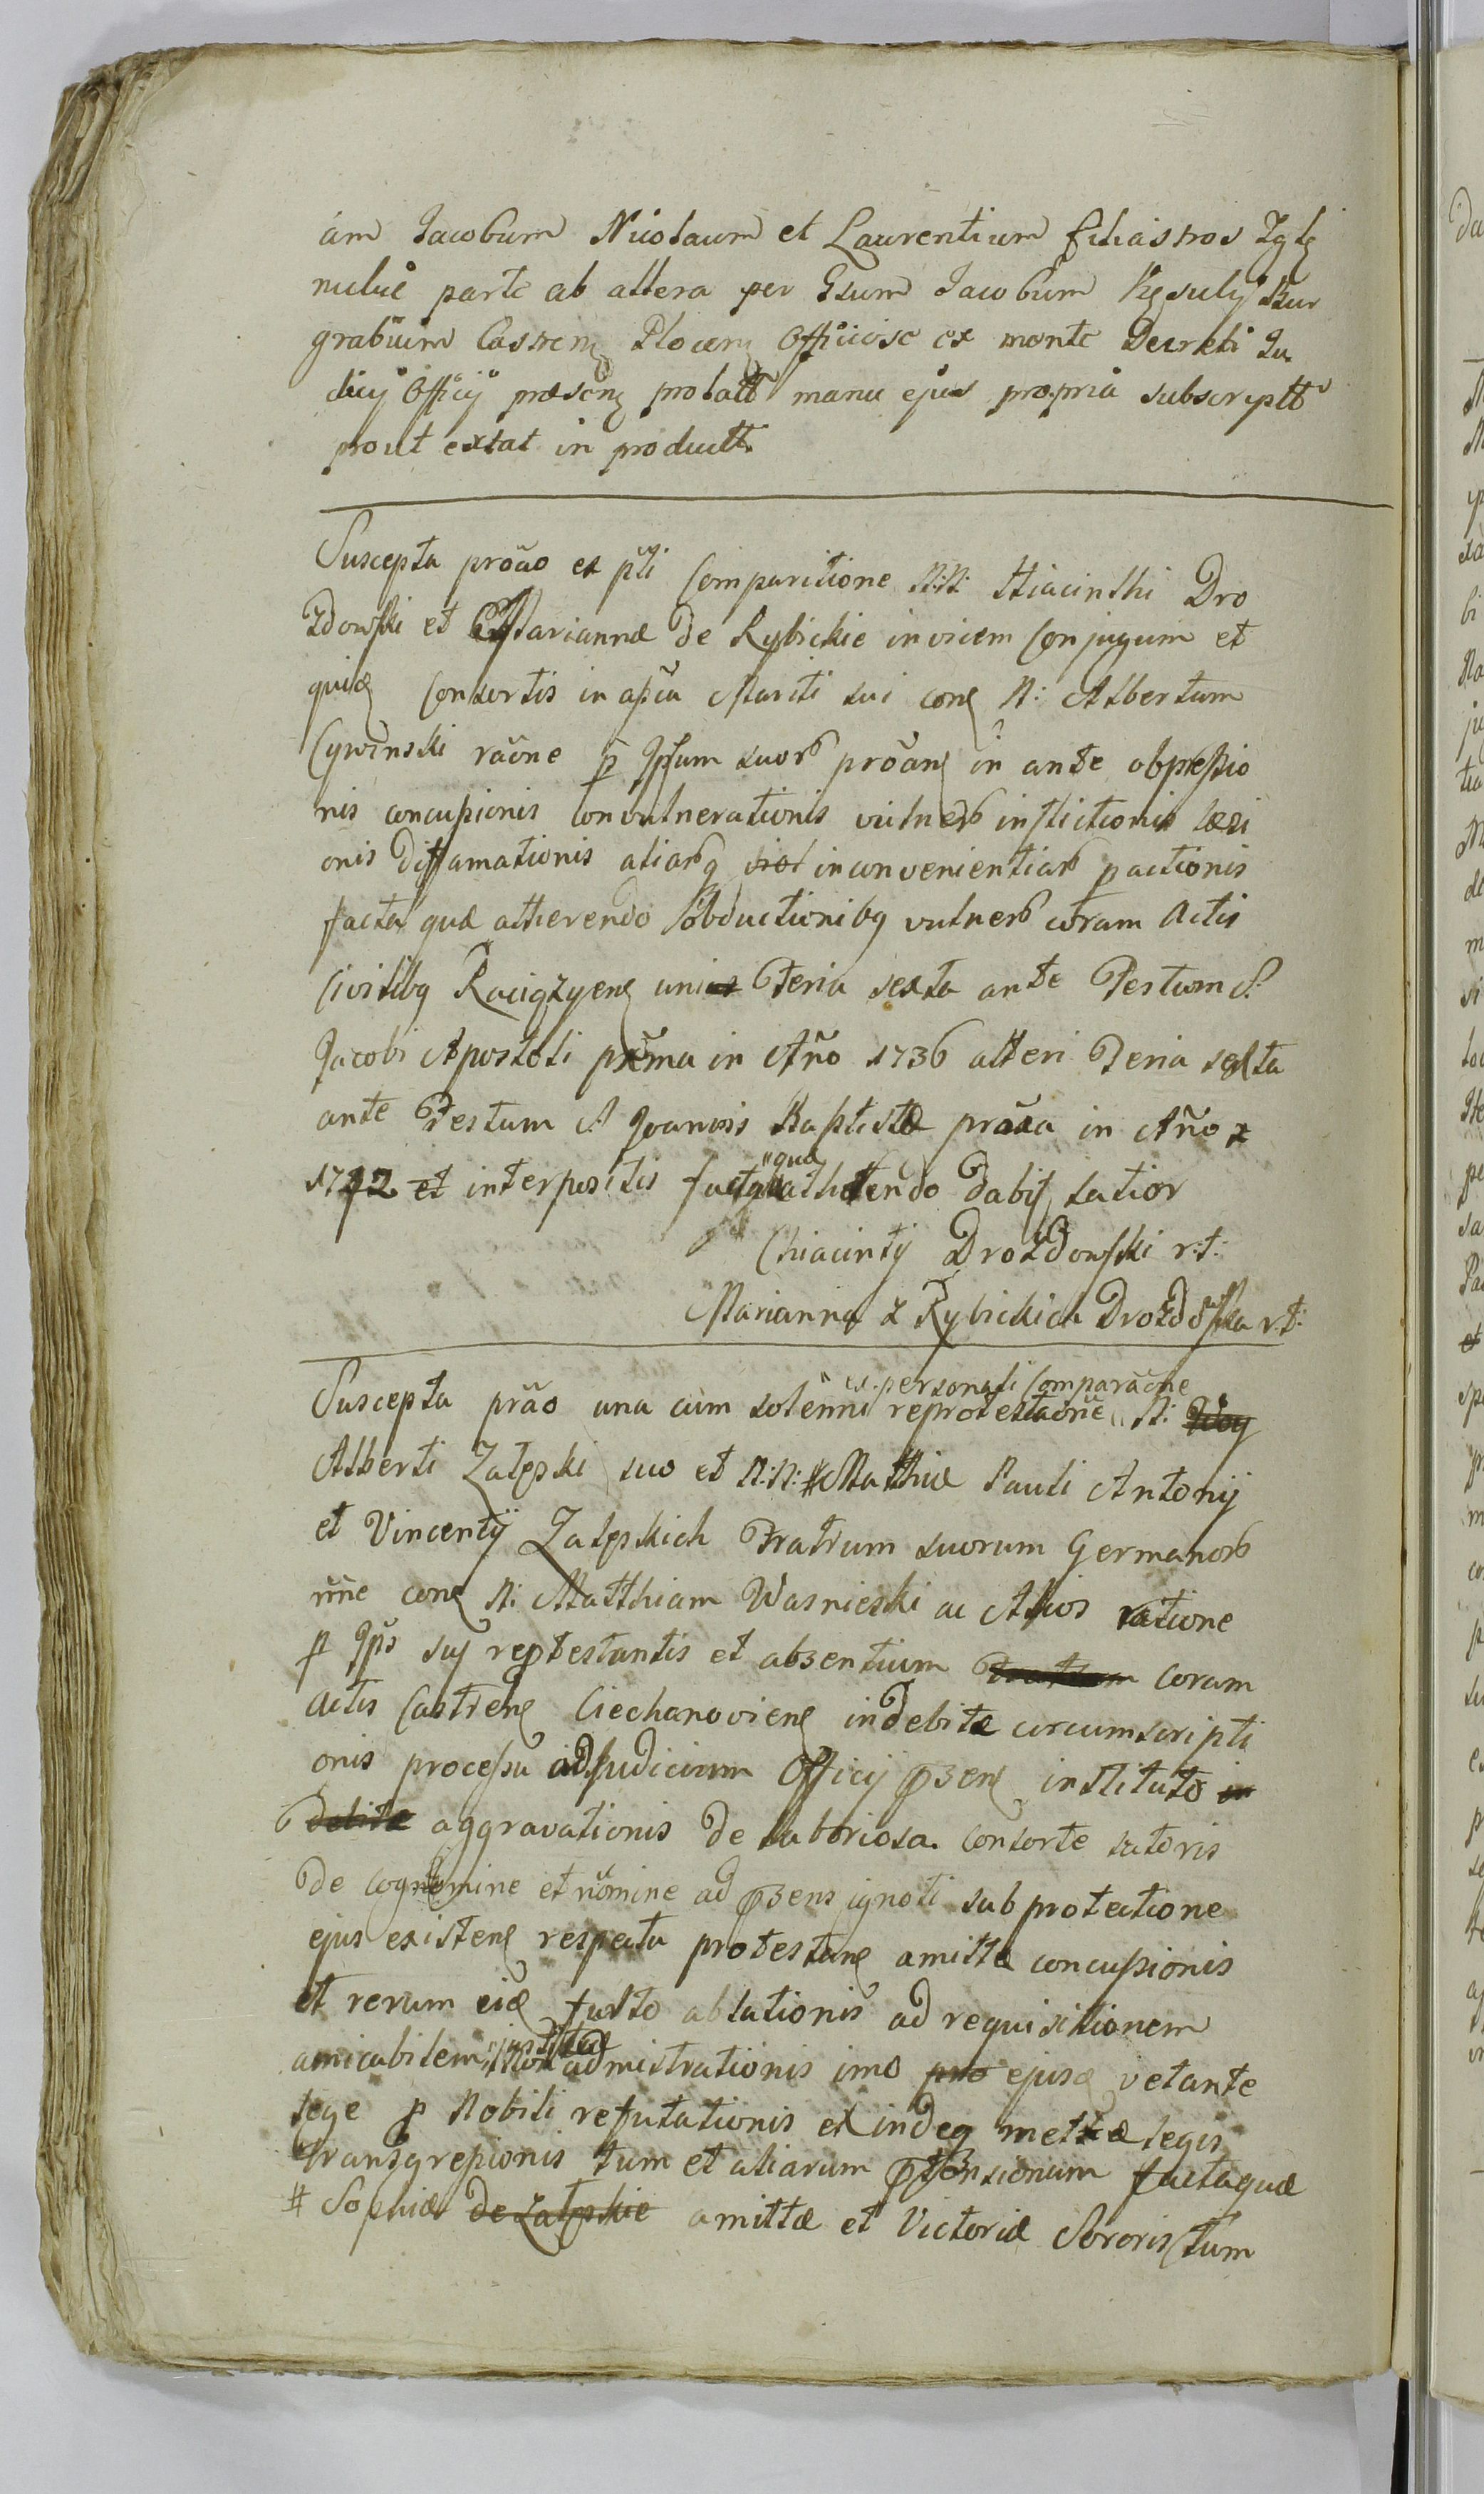 am Jacobum Nicolaum et Laurentium filiastros
parte ab altera per Gsum Jacobum Bur
grabium Castrenę Plocenę Officiose ex mente Decreti Ju
dicÿ Officÿ præsenę probatt manu ejus propria subscriptt
prout extat in productt.
Suscepta prõao ex pñti Comparitione N:N: Hiacinthi Dro
zdowski et Mariannæ de Rybickie invicem Conjugum et
Consortis in Mariti sui conę N: Albertum
Cywinski rãone p Ipsum suorƀ prõanę in ante obpressio
nis concussionis convulnerationis vulnerƀ inflictionis læsi
onis diffamationis aliarƀq inconvenientiarƀ pactionis
facta quæ attinendo obductionibq vulnerƀ coram Actis
Civilibq Raciązÿenę Feria sexta ante Festum S.
Jacobi Apostoli prõma in Año 1736 alteri Feria sexta
ante Festum S Joannis Baptistæ prõxa in Año
1742 et interpositis facta quæ dabit latior
Chiacintÿ Drozdowski r:t:
Marianna z Rybickich Drozdoska r:t:
Suscepta prão una cum solenni reprotestãone ex personali Comparãone N: Woy
Alberti Zalęski suo et N:N: # Matthiæ Pauli Antonij
et Vincentÿ Zalęskich Fratrum suorum Germanorƀ
ñne conę N: Matthiam Wasnieski ac Alios ratione
p Ips suj reptestantis et absentium coram
Actis Castrenę Ciechanovienę indebitæ circumscripti
onis processu ad Judicium Officij instituto in
debitæ aggravationis de laboriosa consorte satoris
de cognomine et nomine ad ignoti sub protectione
ejus existenę respectu protestanę amittæ concussionis
et rerum eiđ furto ablationis ad requisitionem
amicabilem justitiæ non admistrationis imo pro vetante
lege p Nobili refutationis et legis
transgressionis tum et aliarum factaquæ
# Sophiæ de Zalęskie amittæ et Victoriæ Sororis tum